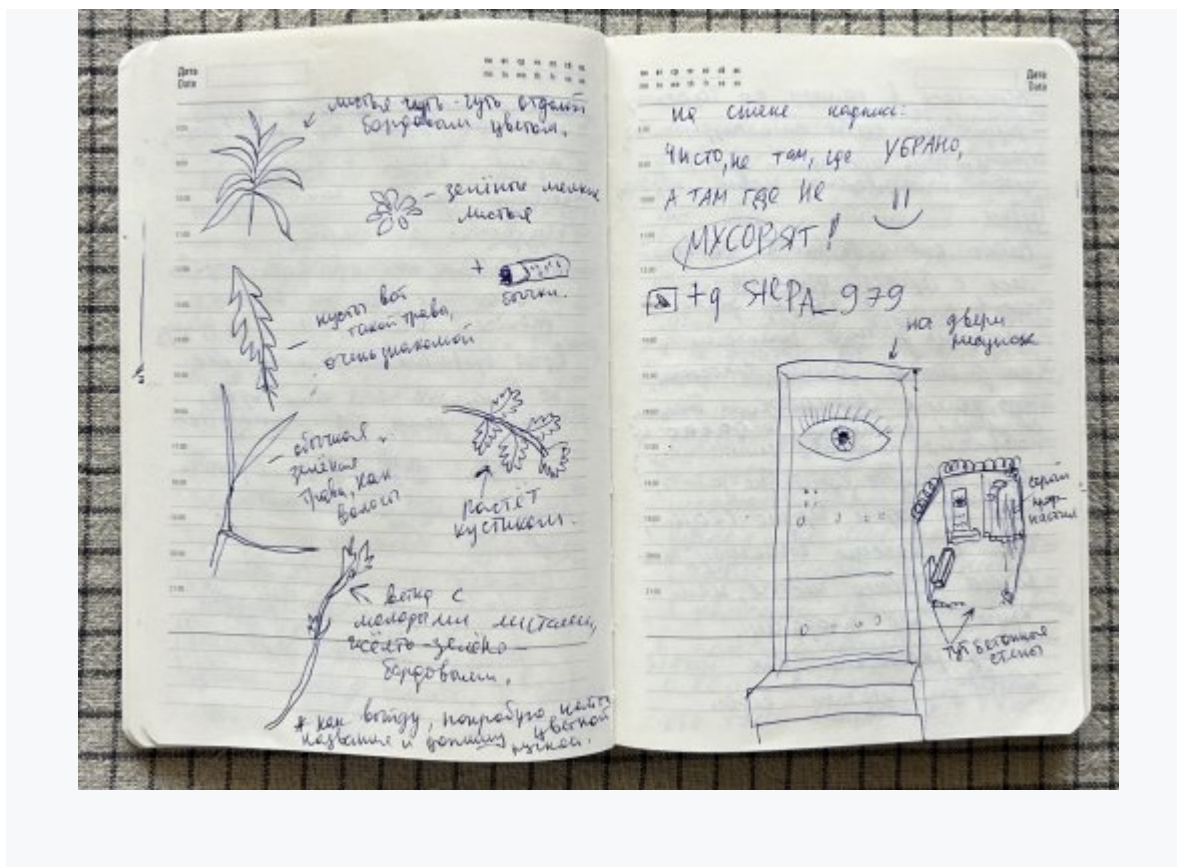 Дата
Data
листья чуть-чуть отдают
бордовым цветом.
- зелёные мелкие
листья
+
бычки.
кусты вот
такой травы,
очень знакомой
- обычная
зелёная
трава, как
волосы
растёт
кустиком.
ветка с
молодыми листьями,
жёлто-зелёно-
бордовыми.
* как выйду, попробую найти
названия и допишу цветной
ручкой.
Дата
Data
на стене надпись:
Чисто, не там, где УБРАНО,
А ТАМ ГДЕ НЕ
МУСОРЯТ!
+g STEPA_979
на двери
рисунок
серый
настил
тут бетонные
стены